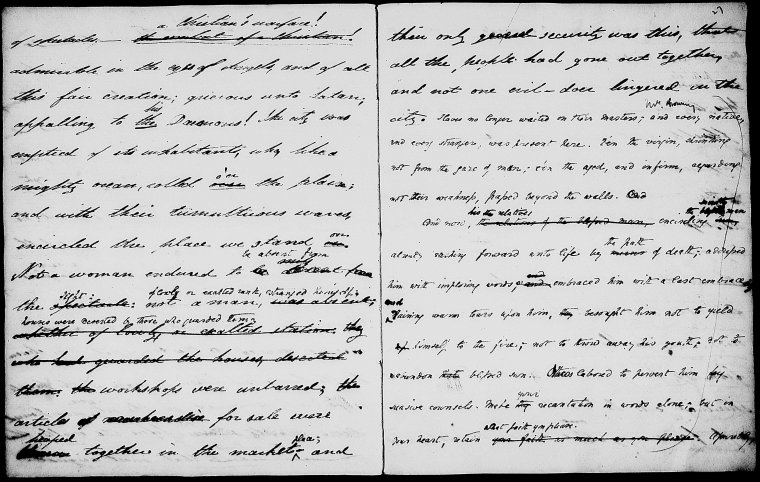 a Christian's warfare!
of spectacles — the combat of a Christian!
admirable in the eyes of Angels, and of all
this fair creation; grievous unto Satan;
his
appalling to the Daemons! The city was
emptied of its inhabitants, who like a
mighty ocean, rolled o'er over the place;
and with their tumultuous waves
encircled the place we stand on.
be absent from
Not a woman endured to be absent from
the sight spectacle: not a man, was absent;
of lowly or exalted rank, estranged himself:
houses were deserted by those who guarded them;
whether of lowly or exalted station. they
who had guarded the houses, deserted
them. the workshops were unbarred; the
articles of merchandise for sale were
heaped together in the market-place; and
27
their only guard security was this, that
all the people had gone out together,
and not one evil-doer lingered in the
city. Slaves no longer waited on their masters; and every native,
and every stranger, was present here. E'en the virgin, shrinking
not from the gaze of men; e'en the aged, and infirm, regarding
not their weakness, passed beyond the walls. And
his the relatives
And now, the relations of the blessed man, encircling
already rushing forward unto life by the path of death; addressed
him with imploring words; and embraced him with a last embrace;
and raining warm tears upon him, they besought him not to yield
up himself to the fire; not to throw away his youth; not to
blessed sun. Others labored to pervert him by
suasive counsels. Make your recantation in words alone; but in
your heart, retain what faith you please.
your faith as much as you please.